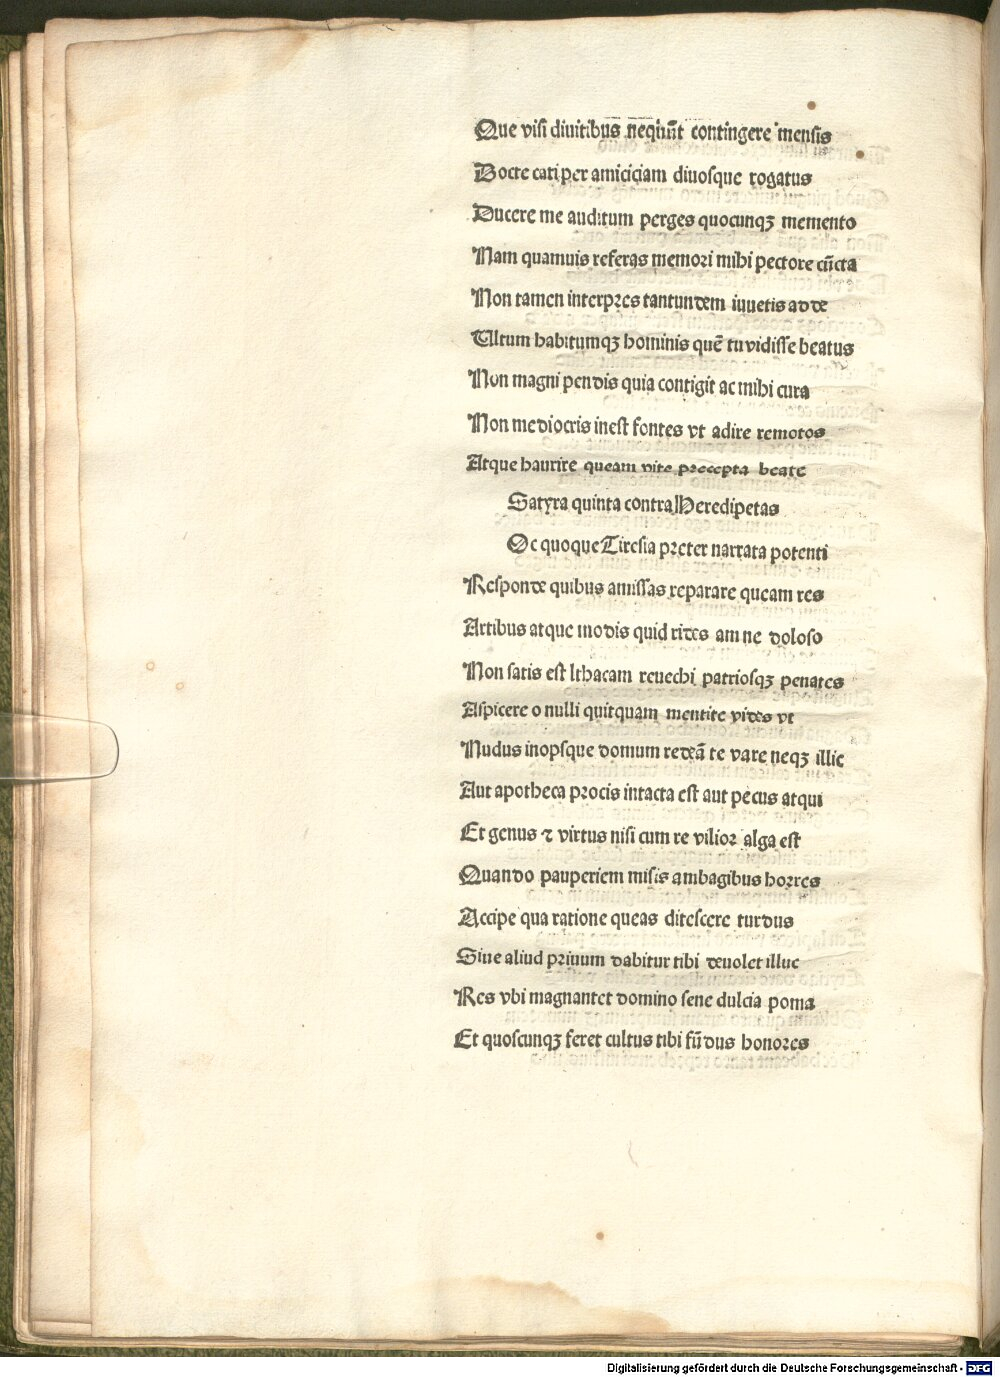 Que visi diuitibus nequiūt contingere mensis
Docte cati per amiciciam diuosque rogatus
Ducere me auditum perges quocunqꝫ memento
Nam quamuis referas memori mihi pectore cūcta
Non tamen interpres tantundem iuuetis adde
Vltum habitumqꝫ hominis quē tu vidisse beatus
Non magni pendis quia contigit ac mihi cura
Non mediocris inest fontes vt adire remotos
Atque haurire queam vite precepta beate
Satyra quinta contra Heredipetas
Oc quoque Tiresia preter narrata potenti
Responde quibus amissas reparare queam res
Artibus atque modis quid rides am ne doloso
Non satis est Ithacam reuechi patriosqꝫ penates
Aspicere o nulli quitquam mentite vides vt
Nudus inopsque domum redeā te vate neqꝫ illic
Aut apotheca procis intacta est aut pecus atqui
Et genus ⁊ virtus nisi cum re vilior alga est
Quando pauperiem misis ambagibus horres
Accipe qua ratione queas ditescere turdus
Siue aliud priuum dabitur tibi deuolet illuc
Res vbi magnantet domino sene dulcia poma
Et quoscunqꝫ feret cultus tibi fūdus honores
Digitalisierung gefördert durch die Deutsche Forschungsgemeinschaft - DFG